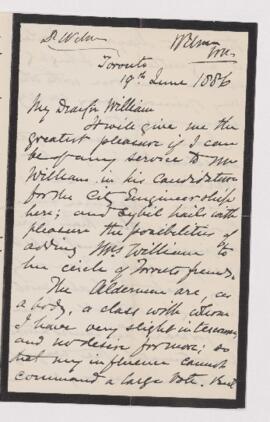 Toronto
19th June 1886
My Dear Sir William
It will give me the
greatest pleasure if I can
be of any service to Mr
William in his Candidature
for the City Engineership
here; and Sybil hails with
pleasure the possibilities of
adding Mrs William to
her circle of Toronto friends.
The Aldermen are, as
a body, a class with whom
I have very slight intercourse,
and no desire for more; so
that my influence cannot
command a large vote. But